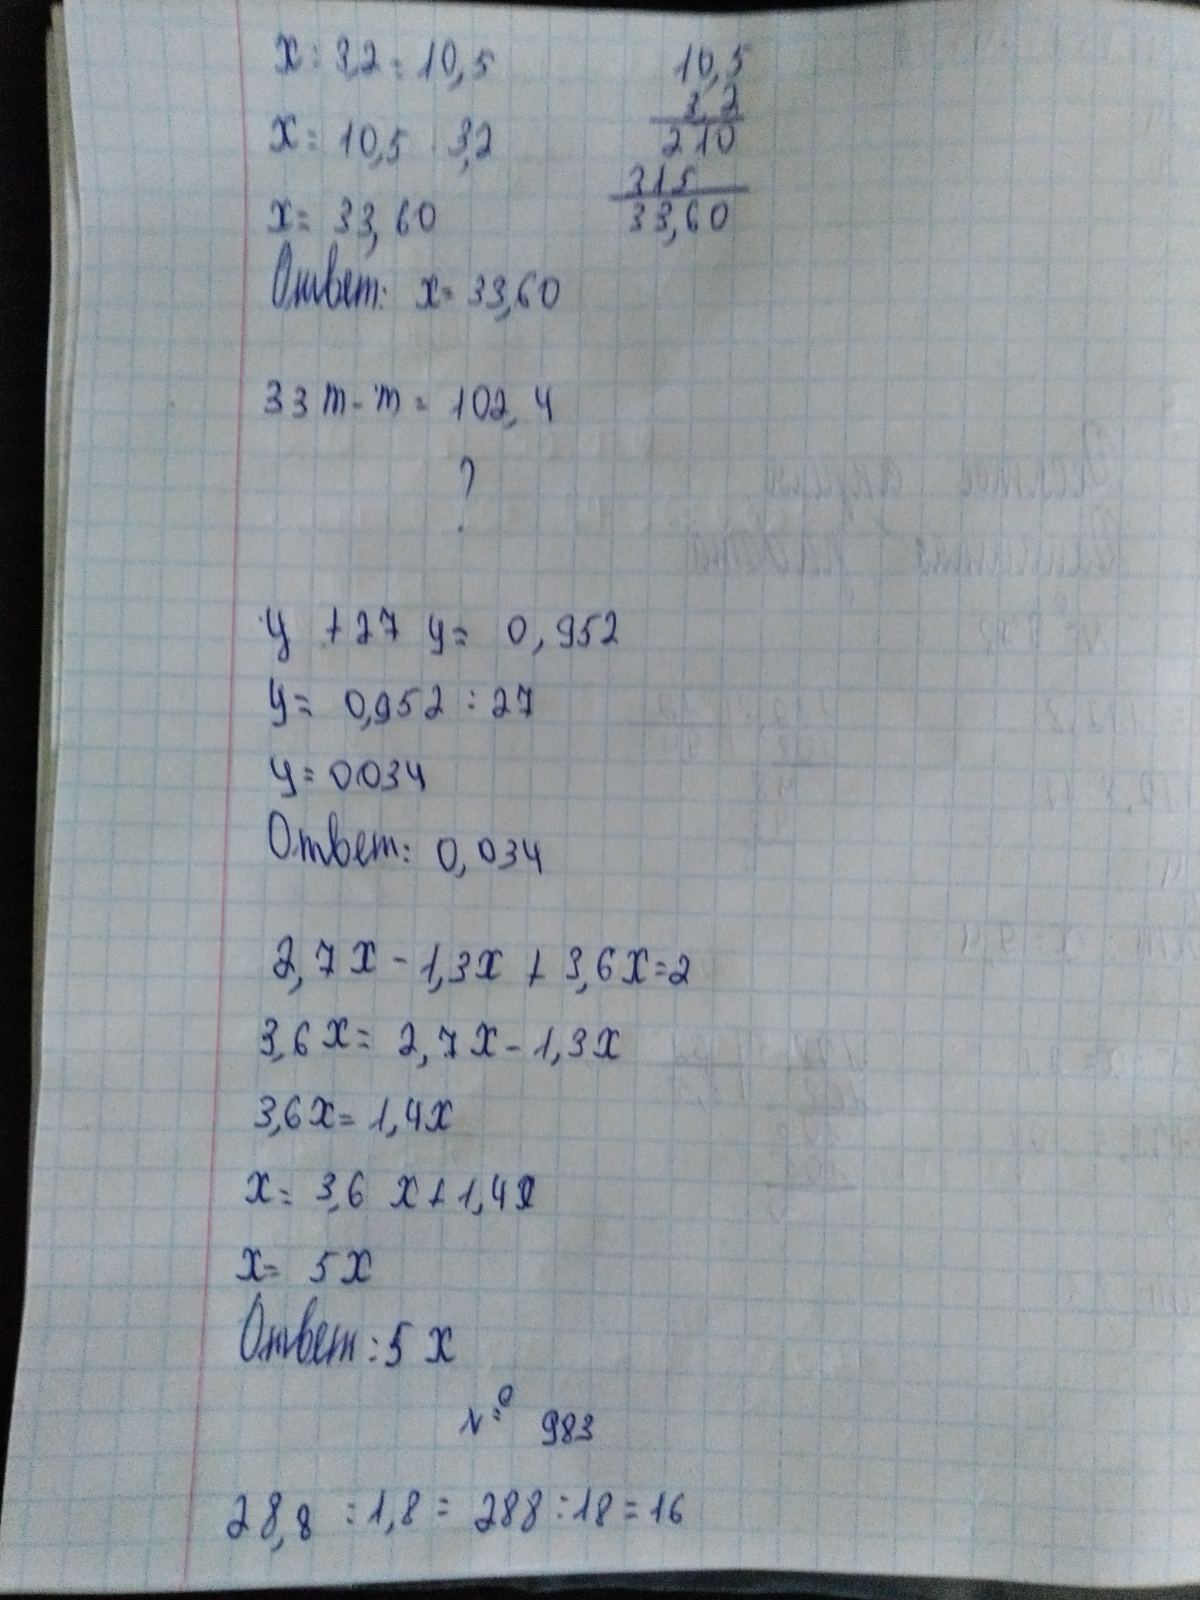 x : 3,2 = 10,5
10,5
x = 10,5 · 3,2
3,2
210
315
x = 33,60
33,60
Ответ: x = 33,60
33 m - m = 102,4
?
y + 27 y = 0,952
y = 0,952 : 27
y = 0034
Ответ: 0,034
2,7x - 1,3x + 3,6x = 2
3,6x = 2,7x - 1,3x
3,6x = 1,4x
x = 3,6 x + 1,4x
x = 5x
Ответ: 5 x
№ 983
28,8 : 1,8 = 288 : 18 = 16